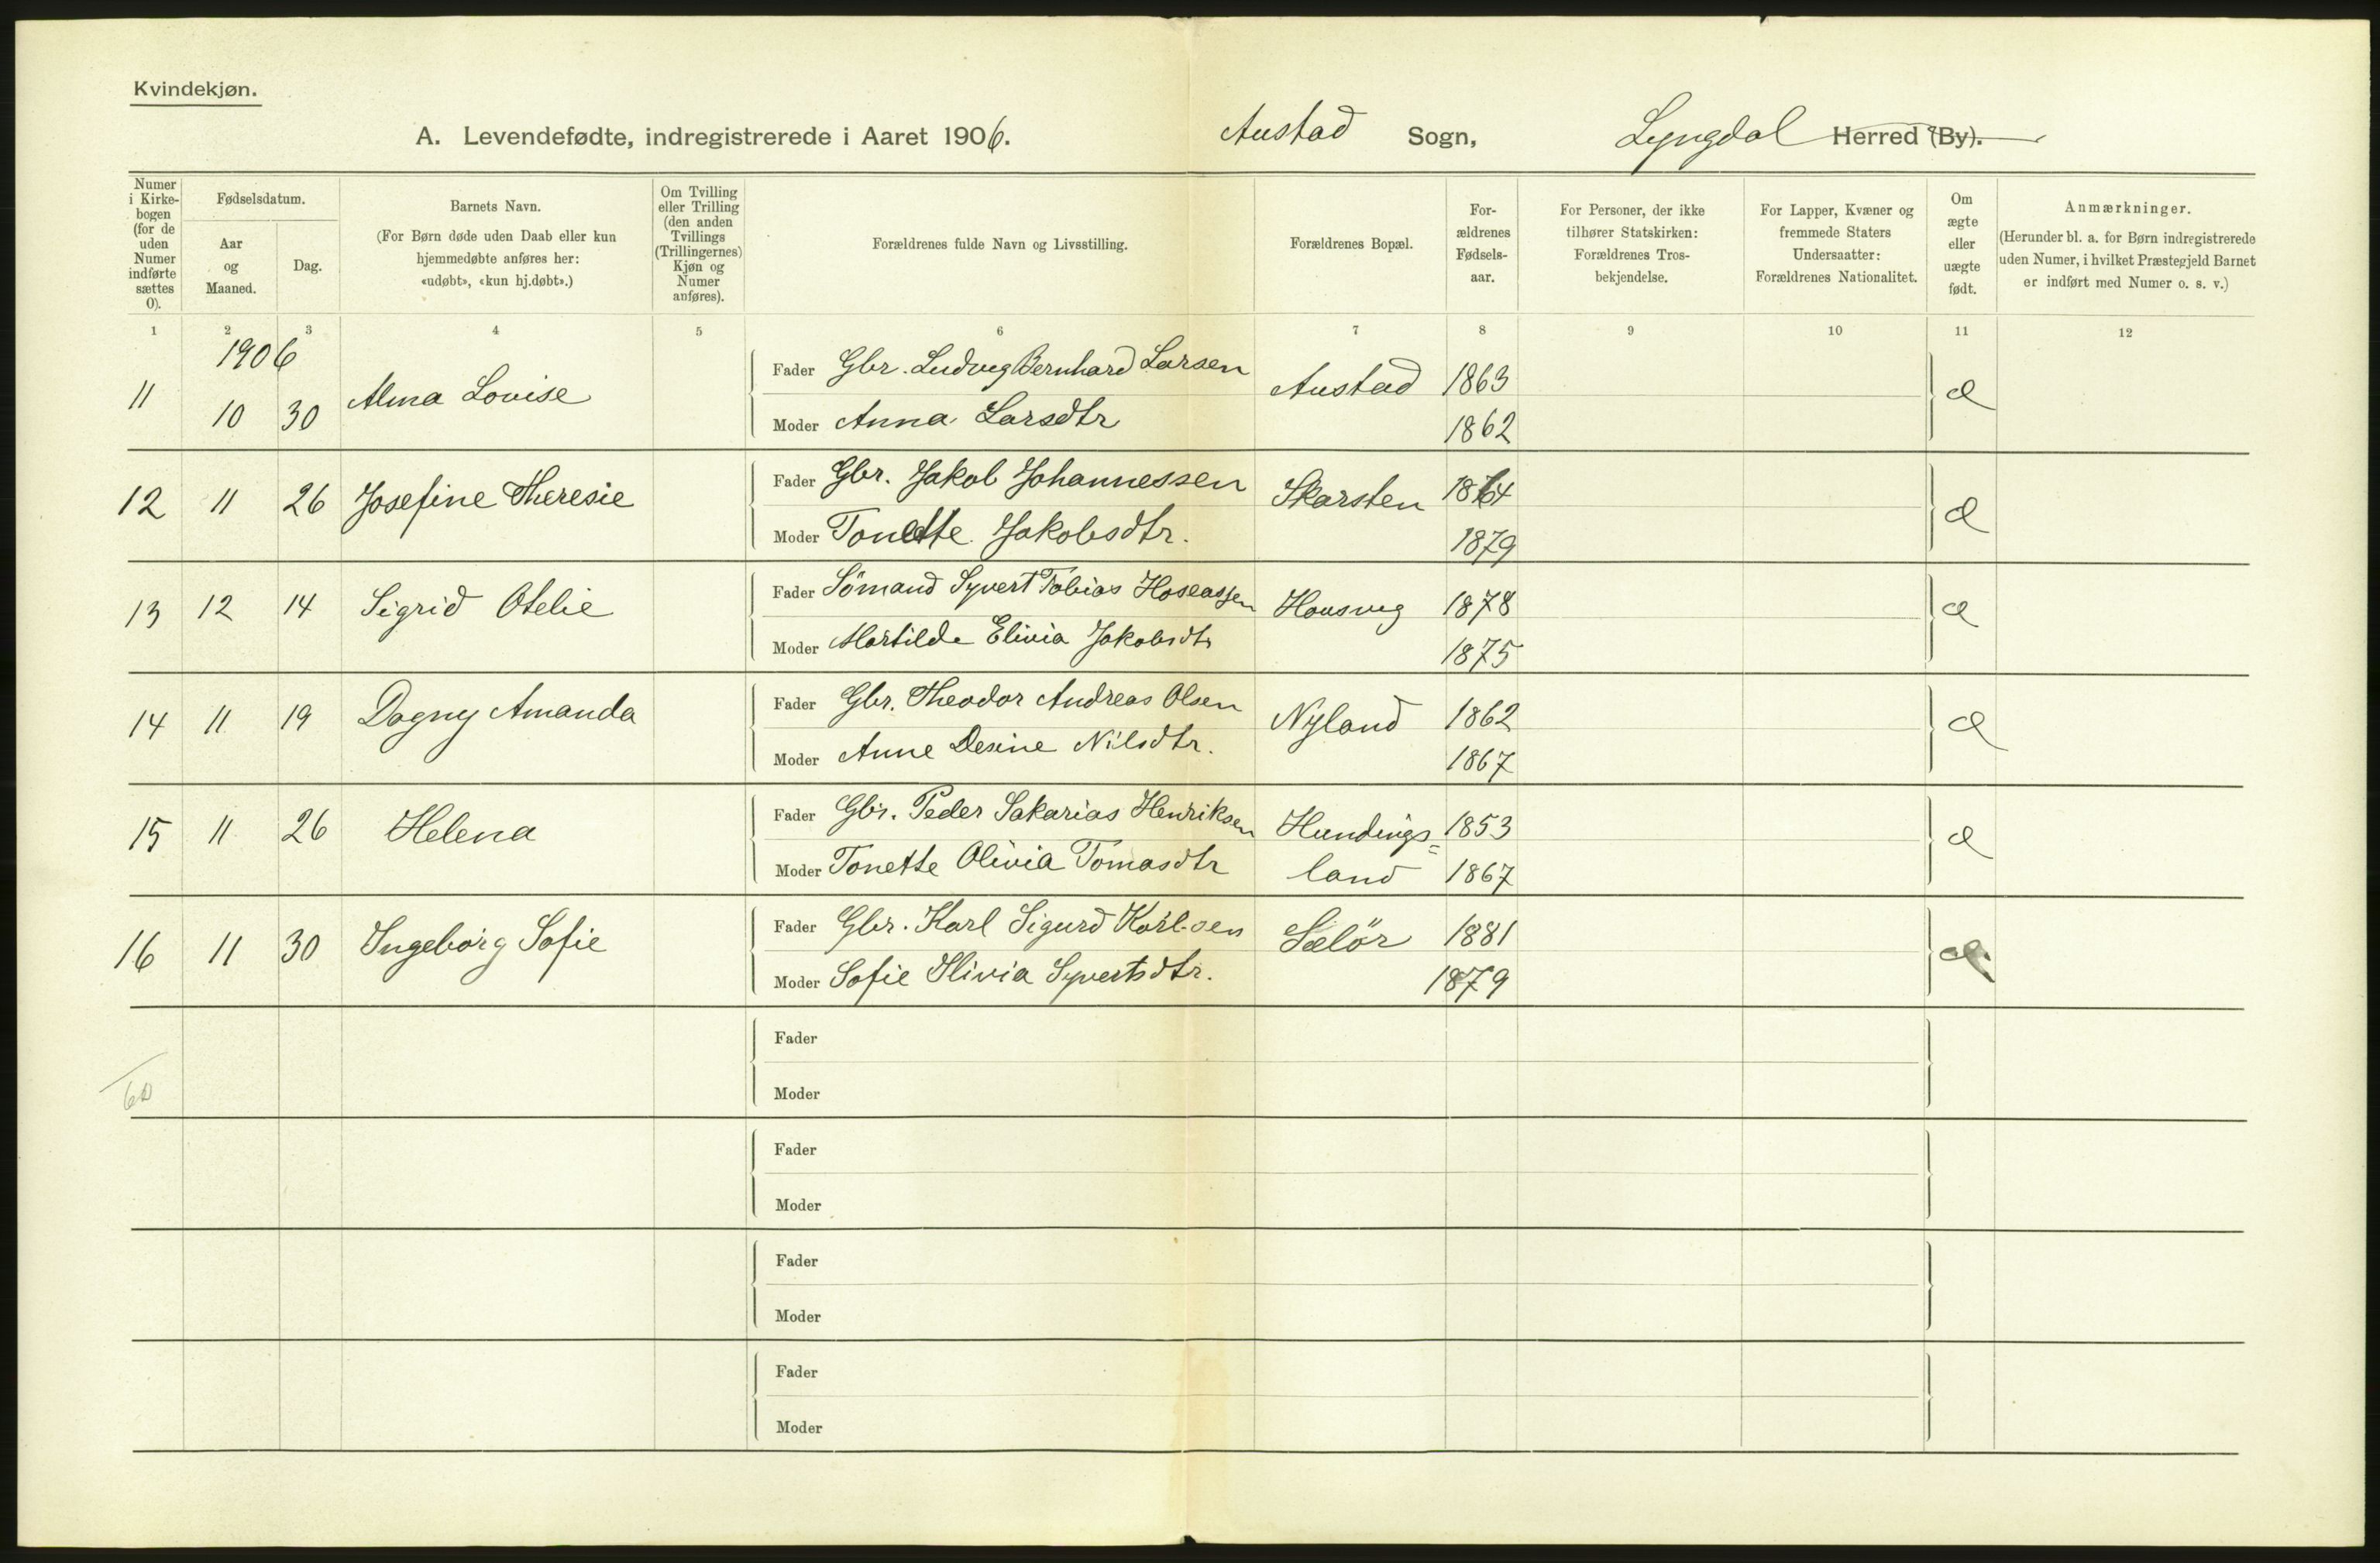 Kvindekjøn.
A. Levendefødte, indregistrerede i Aaret 1906. Austad Sogn, Lyngdal Herred (By).
Numer i Kirkebogen (for de uden Numer indførte sættes 0).
Fødselsdatum.
Aar og Maaned.
Dag.
Barnets Navn.
(For Børn døde uden Daab eller kun hjemmedøbte anføres her: «udøbt», «kun hj.døbt».)
Om Tvilling eller Trilling (den anden Tvillings (Trillingernes) Kjøn og Numer anføres).
Forældrenes fulde Navn og Livsstilling.
Forældrenes Bopæl.
For-ældrenes Fødsels-aar.
For Personer, der ikke tilhører Statskirken: Forældrenes Tros-bekjendelse.
For Lapper, Kvæner og fremmede Staters Undersaatter: Forældrenes Nationalitet.
Om ægte eller uægte født.
Anmærkninger.
(Herunder bl. a. for Børn indregistrerede uden Numer, i hvilket Præstegjeld Barnet er indført med Numer o. s. v.)
1 2 3 4 5 6 7 8 9 10 11 12
1906
11 10 30 Alma Louise Fader Gbr. Ludvig Bernhard Larsen Austad 1863 æ
Moder Anna Larsdtr 1862
12 11 26 Josefine Theresie Fader Gbr. Jakob Johannessen Skarsten 1864 æ
Moder Tonette Jakobsdtr. 1879
13 12 14 Sigrid Otelie Fader Sömand Syvert Tobias Hoseassen Housvig 1878 æ
Moder Martilde Elivia Jakobsdtr 1875
14 11 19 Dagny Amanda Fader Gbr. Theodor Andreas Olsen Nyland 1862 æ
Moder Anne Desine Nilsdtr. 1867
15 11 26 Helena Fader Gbr. Peder Sakarias Henriksen Hundings= 1853 æ
Moder Tonette Olivia Tomasdtr land 1867
16 11 30 Ingeborg Sofie Fader Gbr. Karl Sigurd Karlsen Selör 1881 æ
Moder Sofie Olivia Syvertsdtr. 1879
Fader
Moder
Fader
Moder
Fader
Moder
Fader
Moder